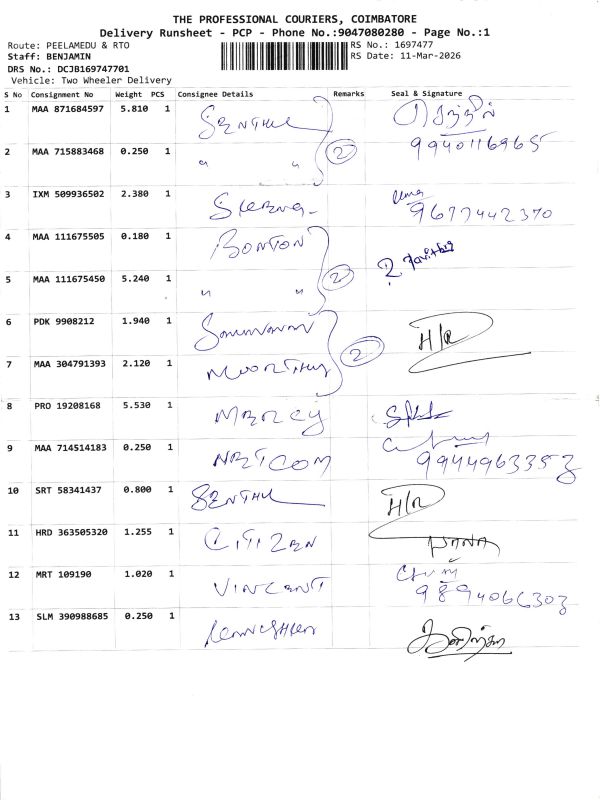 THE PROFESSIONAL COURIERS, COIMBATORE
Delivery Runsheet - PCP - Phone No.:9047080280 - Page No.:1
Route: PEELAMEDU & RTO
RS No.: 1697477
Staff: BENJAMIN
RS Date: 11-Mar-2026
DRS No.: DCJB169747701
Vehicle: Two Wheeler Delivery
S No Consignment No Weight PCS Consignee Details Remarks Seal & Signature
1 MAA 871684597 5.810 1 SENTHIL செந்தில்
9940116965
2 MAA 715883468 0.250 1 " " 2
3 IXM 509936502 2.380 1 Uma
9677442370
4 MAA 111675505 0.180 1 BONTON
5 MAA 111675450 5.240 1 " " 2
6 PDK 9908212 1.940 1 H/R
7 MAA 304791393 2.120 1 MOORTHY 2
8 PRO 19208168 5.530 1 MERCY
9 MAA 714514183 0.250 1 NETCOM
9944963353
10 SRT 58341437 0.800 1 SENTHIL H/R
11 HRD 363505320 1.255 1 CITIZEN
12 MRT 109190 1.020 1 VINCENT
9894066303
13 SLM 390988685 0.250 1